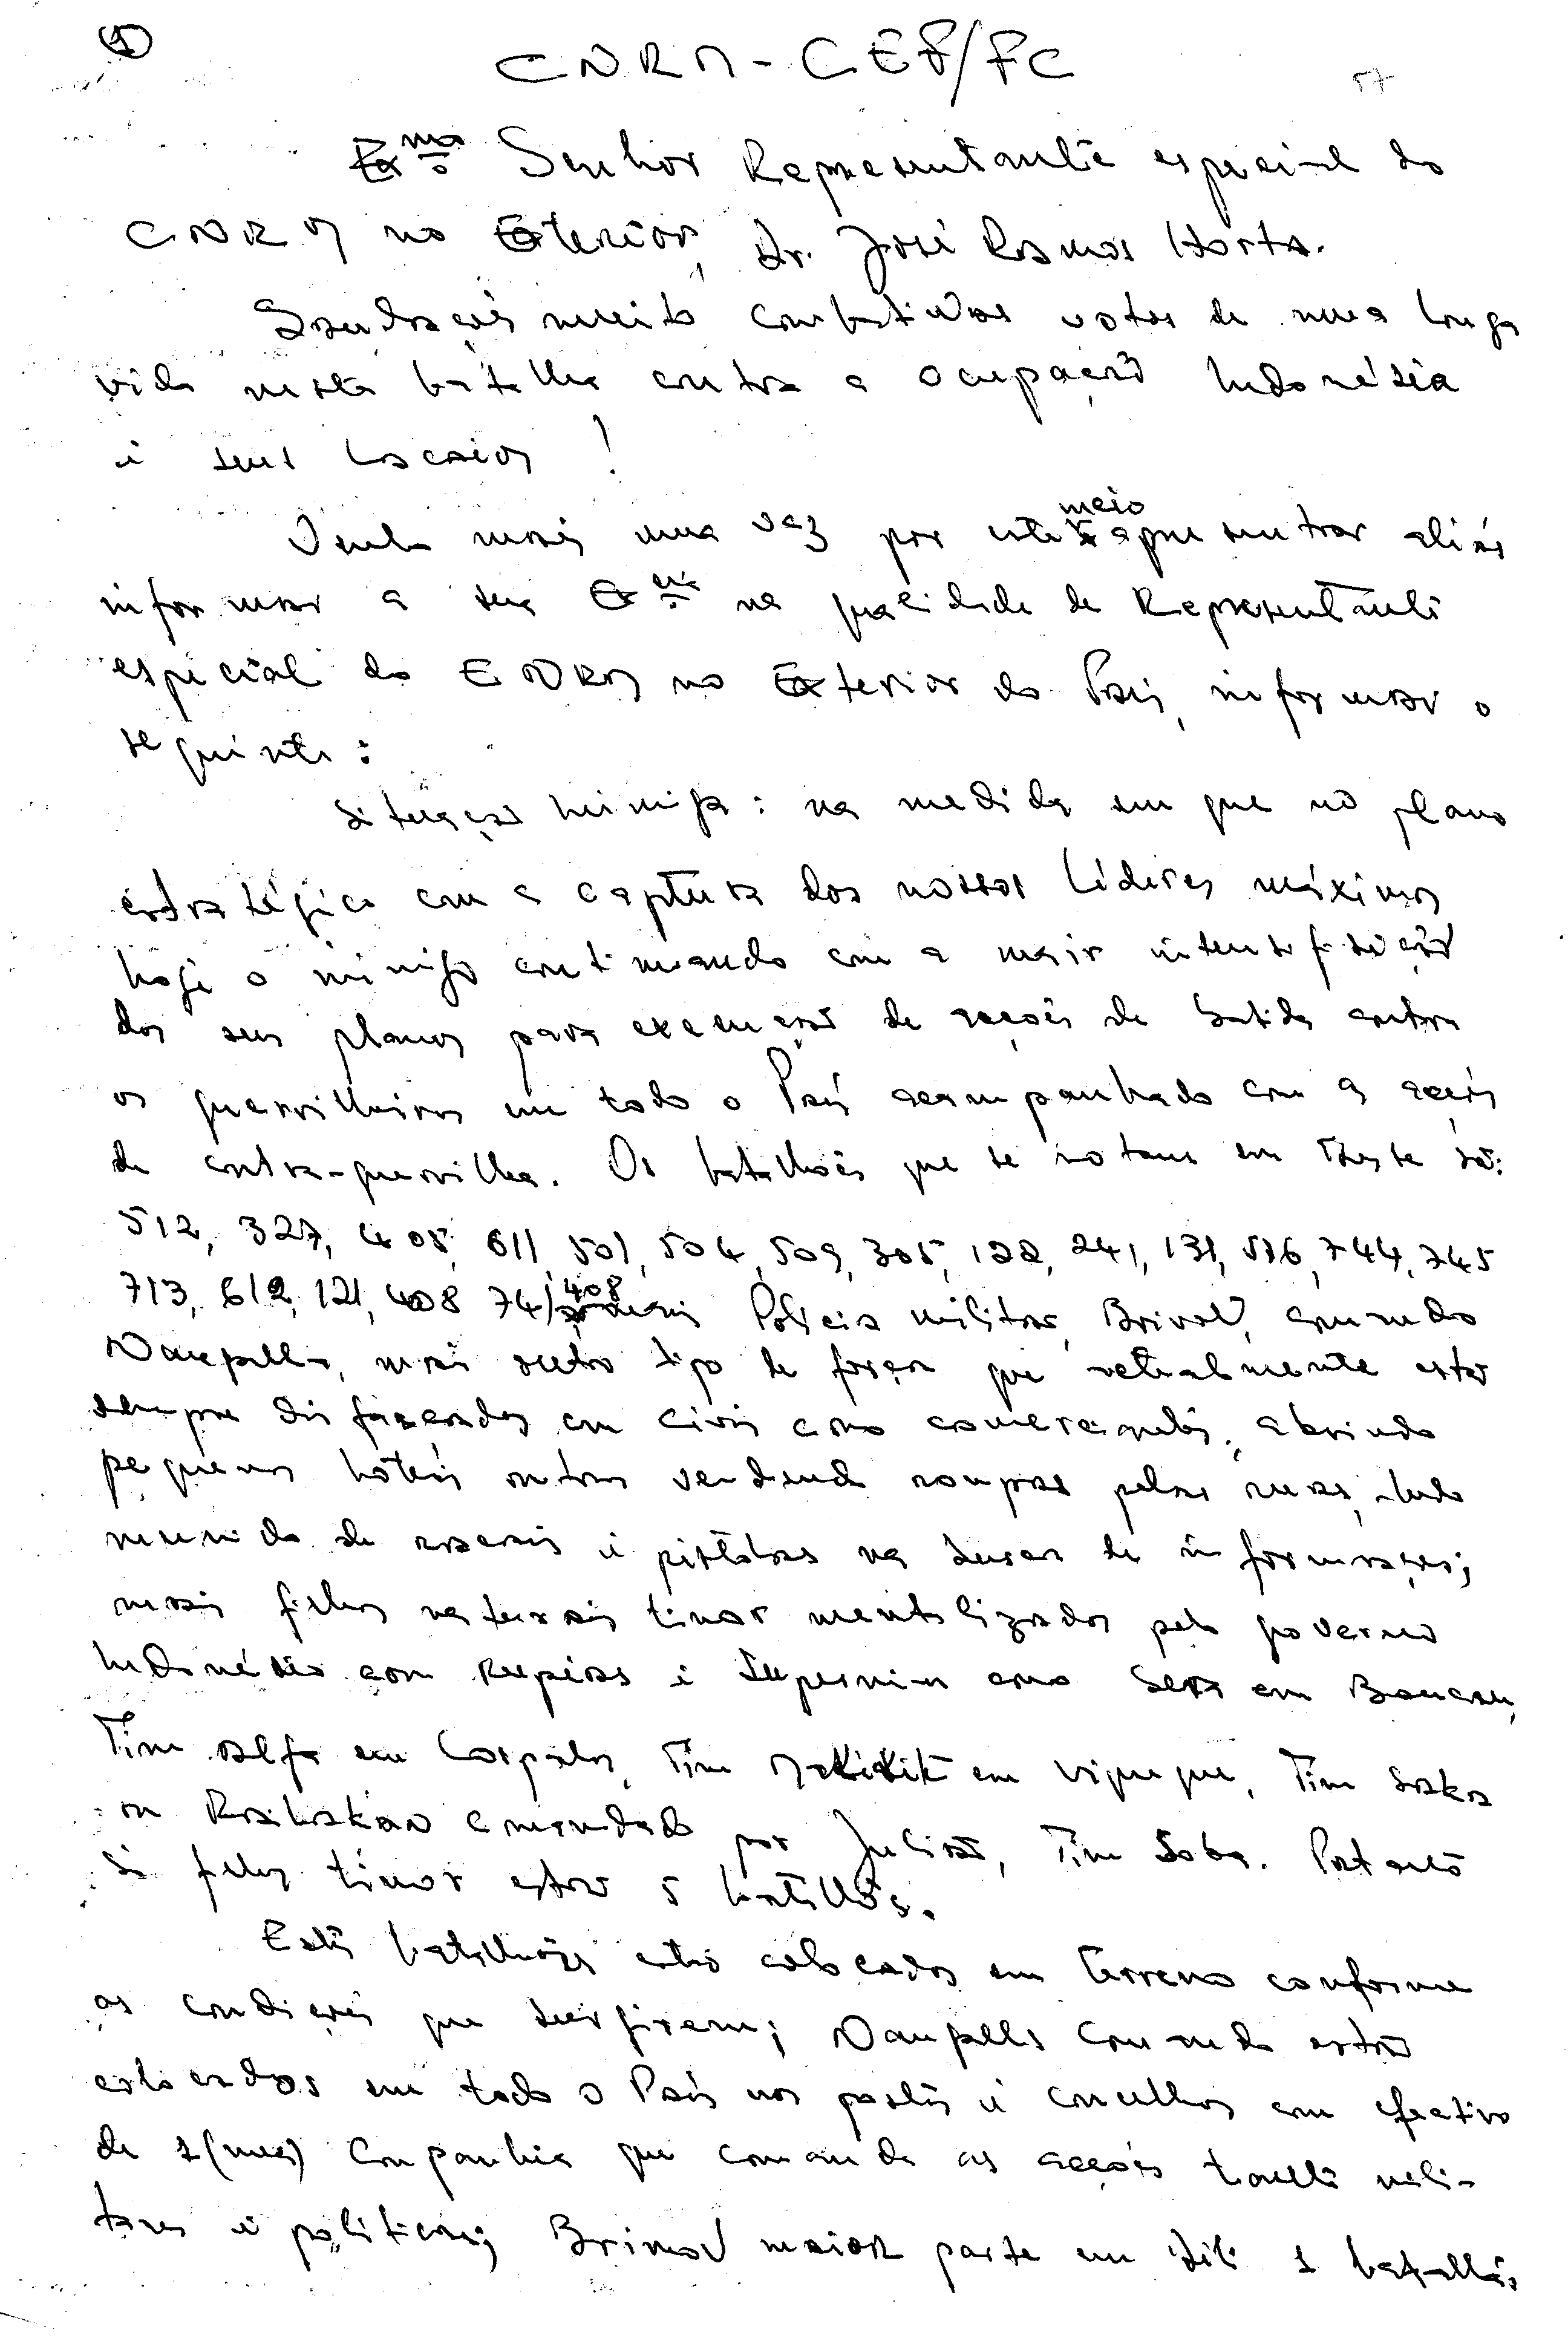 1
CNRM - CEF/FC
57
Exmo Senhor Representante especial do
CNRM no Exterior, Dr. José Ramos Horta.
Saudações muito combativas votos de uma longa
vida nesta batalha contra a ocupação Indonésia
e seus lacaios!
Venho mais uma vez por este meio apresentar aliás
informar a sua Exia na qualidade de Representante
especial do CNRM no Exterior do País, informar o
seguinte:
Situação inimiga: na medida em que no plano
estratégico com a captura dos nossos Líderes máximos
hoje o inimigo continuando com a mair
dos seus planos para execução de acções de batida contra
os guerrilheiros em todo o País acompanhado com as acções
de contra-guerrilha. Os batalhões que se notam em Leste são:
512, 327, 405, 611, 501, 504, 509, 305, 122, 241, 131, 516, 744, 745
713, 612, 121, 408 741, 408 mais Policia militar, Brimob, comando
Nanggala, mais outro tipo de força que actualmente estão
sempre disfarçados em civis como comerciantes, abrindo
pequenos hotéis outros vendendo roupas pelas ruas, tudo
munido de e pistolas na busca de informações;
mais filhos naturais timor mentalizados pelo governo
Indonésio com Rupias e como Sera em Baucau,
Tim alfa em Lospalos, Tim Makikit em Viqueque, Tim Saka
ou Railakan comandado por Julião, Tim Saba. Portanto
só filhos timor estão 5 batalhões.
Estes batalhões estão colocados em terreno conforme
as condições que surgirem; Nanggala Comando estão
colocados em todo o País nos postos e concelhos com efectivo
de 1 (uma) Companhia que comanda as acções tanto mili-
tares e políticas; Brimob maior parte em Dili 1 batalhão,